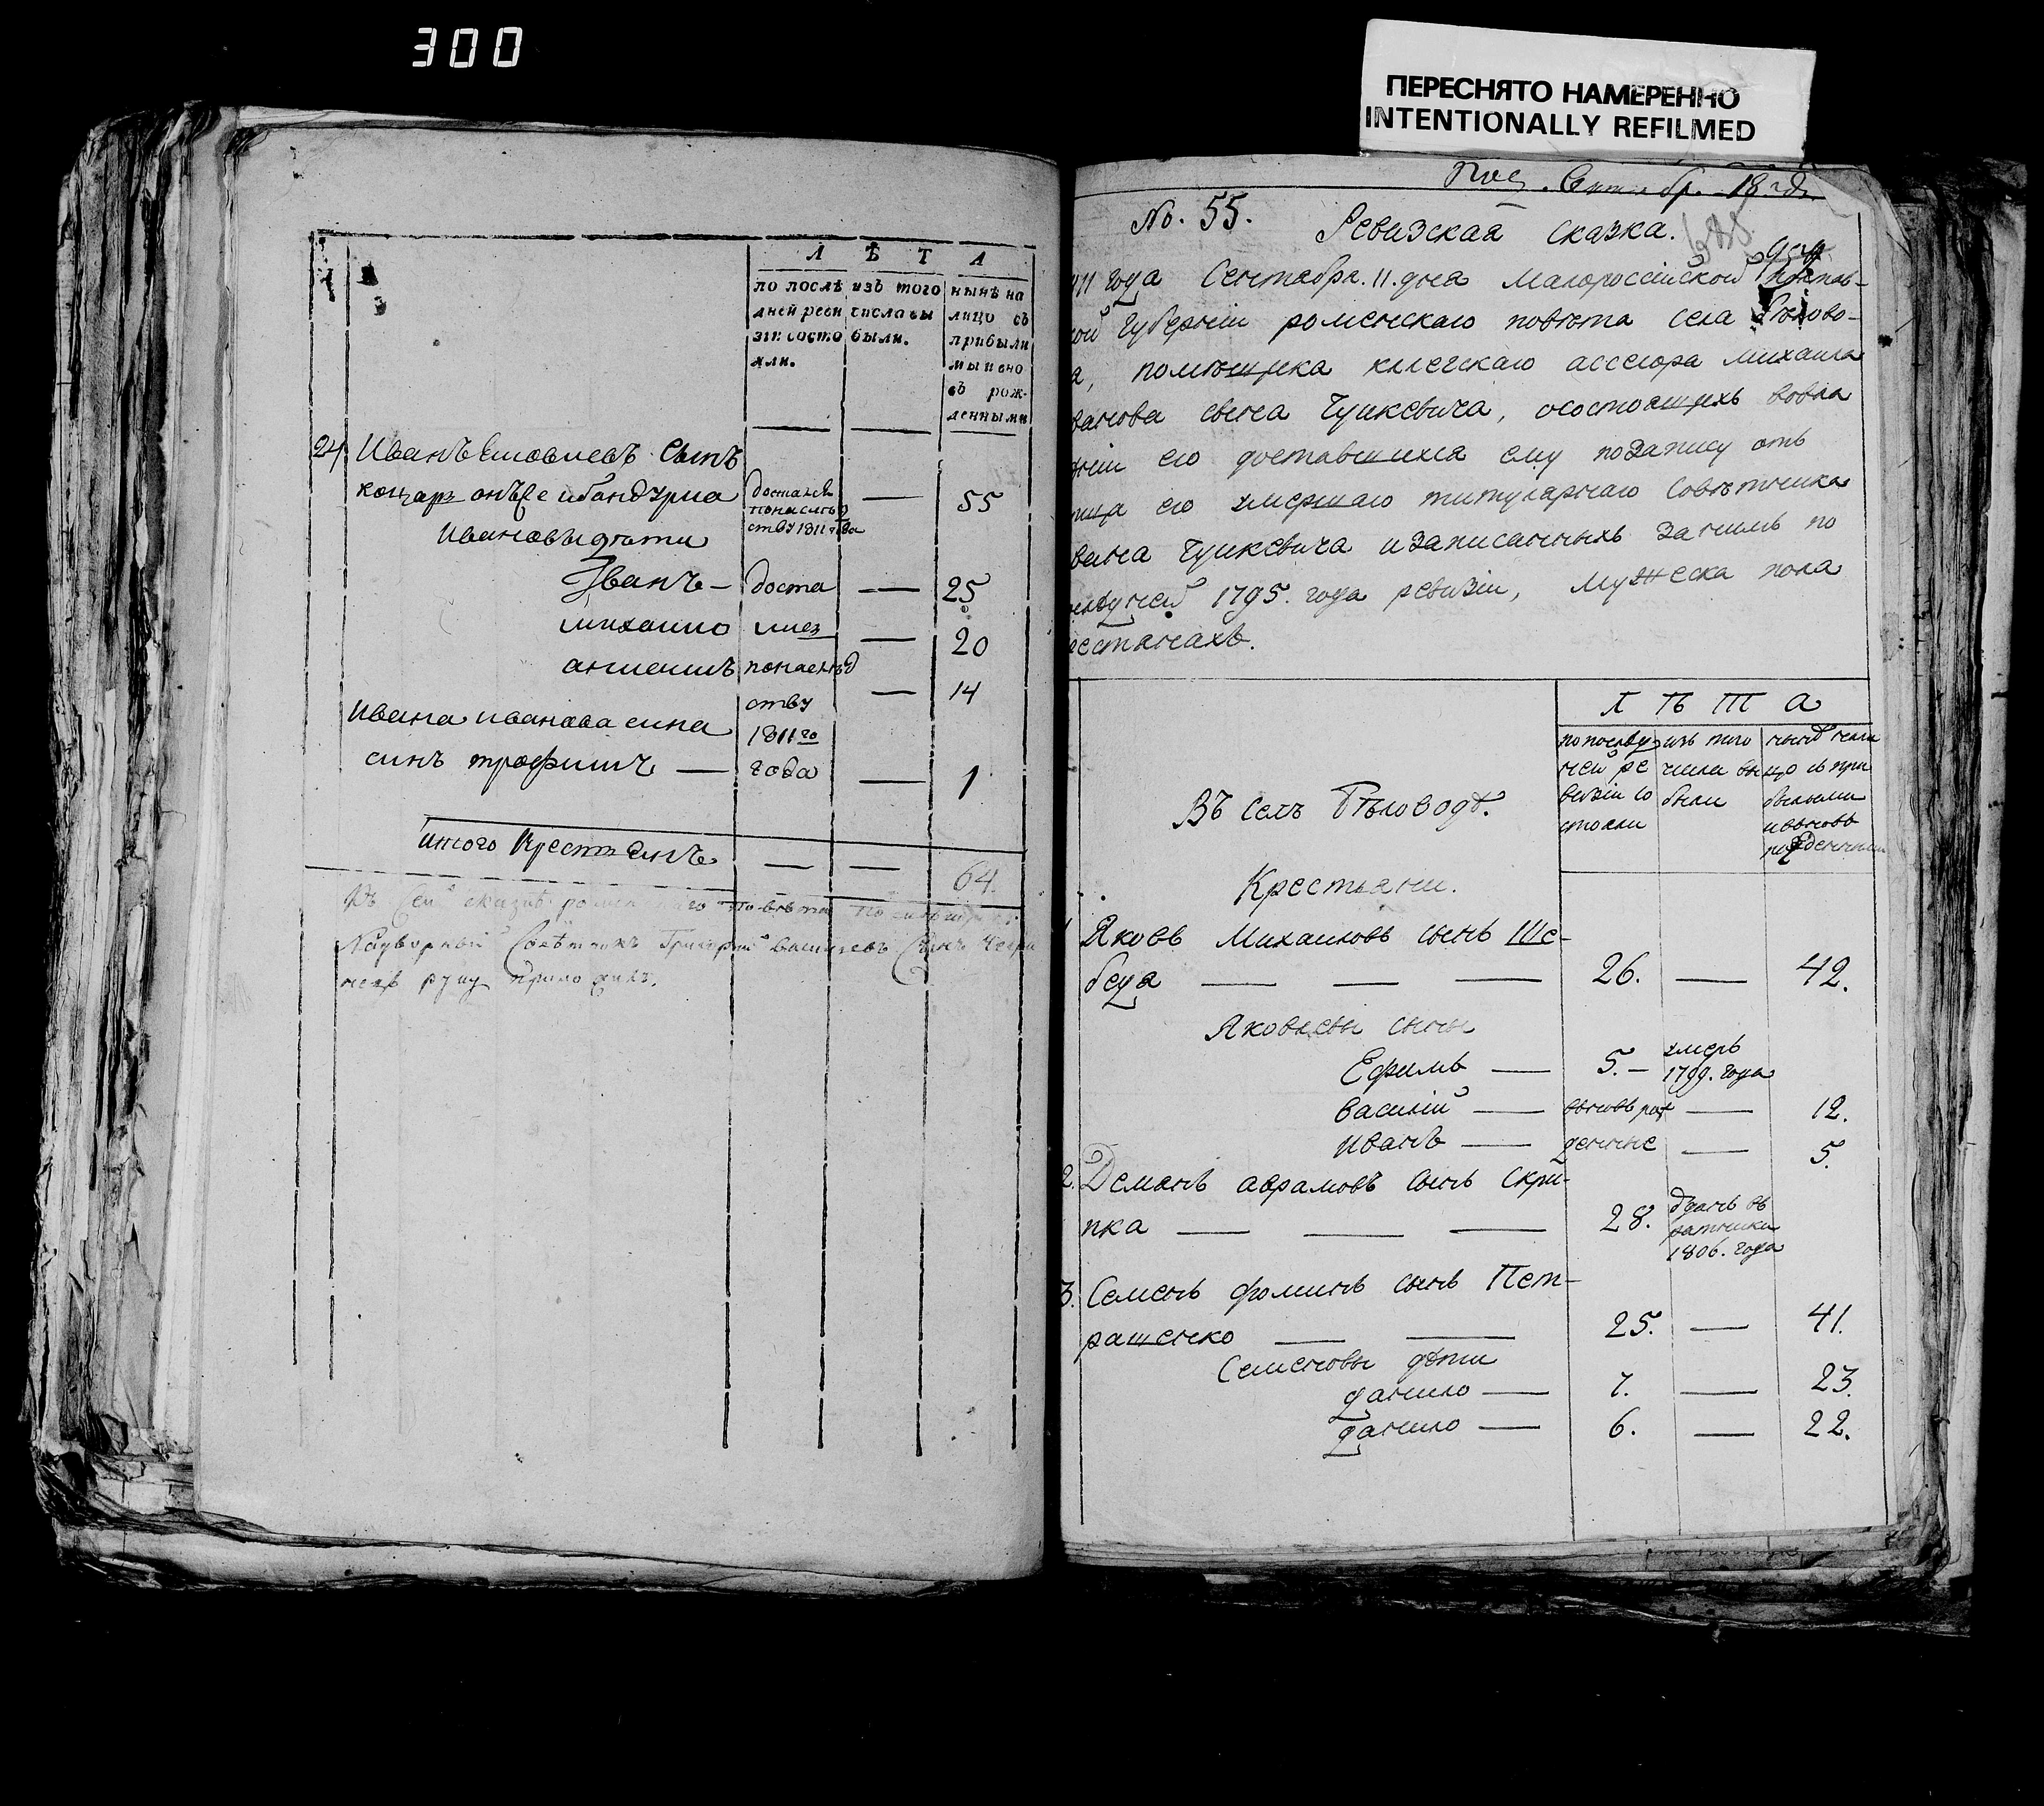 300
ПЕРЕСНЯТО НАМЕРЕННО
INTENTIONALLY REFILMED
Л Ѣ Т А
по послѣ
дней реви
зіи состо
яли.
изъ того
числа вы
были.
нынѣ на
лицо съ
прибыли
ми и вно
въ рож-
денными
24 Иванъ Яковлевъ Сынъ
достался
55
по наслѣд
ству 1811 года
Ивановы дѣти
Иванъ — доста — 25
михаило лись — 20
по наслѣд — 14
ству
Ивана иванова сина
1811го
синъ трофимъ — года — 1
итого Крестьянъ — — 64.
Къ сей сказкѣ роменского повѣта
Надворный Совѣтникъ Григорій Васильевъ Сынъ
руку приложилъ.
No. 55. Ревизская сказка.
года Сентября. 11. дня Малороссійской Полтав-
кой Губерніи роменскаго повѣта села Бѣлово-
помѣщика колежскаго ассесора михаила
сына Цушкевича, о состоящихъ во вла
его доставшихся ему по запису отъ
его умершаго титулярнаго Совѣтника
Цушкевича и записанныхъ за нимъ по
1795. года ревизіи, мужеска пола
крестьянахъ.
Л Ѣ Т А
по послѣд
ней ре
визіи со
стояли
изъ того
числа вы
были
нынѣ на ли
цо съ при
былыми
и вновь
рожденными
Въ селѣ Бѣловодѣ.
Крестьяни.
1 Яковъ Михаиловъ сынъ Ше-
беда — — — 26. — 42.
Яковлевы сыны
Ефимъ — 5. — умеръ
1799. года
василій — вновь рож — 12.
иванъ — денные — 5.
2. Демянъ аврамовъ сынъ Скри-
пка — — — 28. отданъ въ
ратники
1806. года
3. Семенъ фоминъ сынъ Пет-
рашенко — — 25. — 41.
Семеновы дѣти
данило — 7. — 23.
данило — 6. — 22.